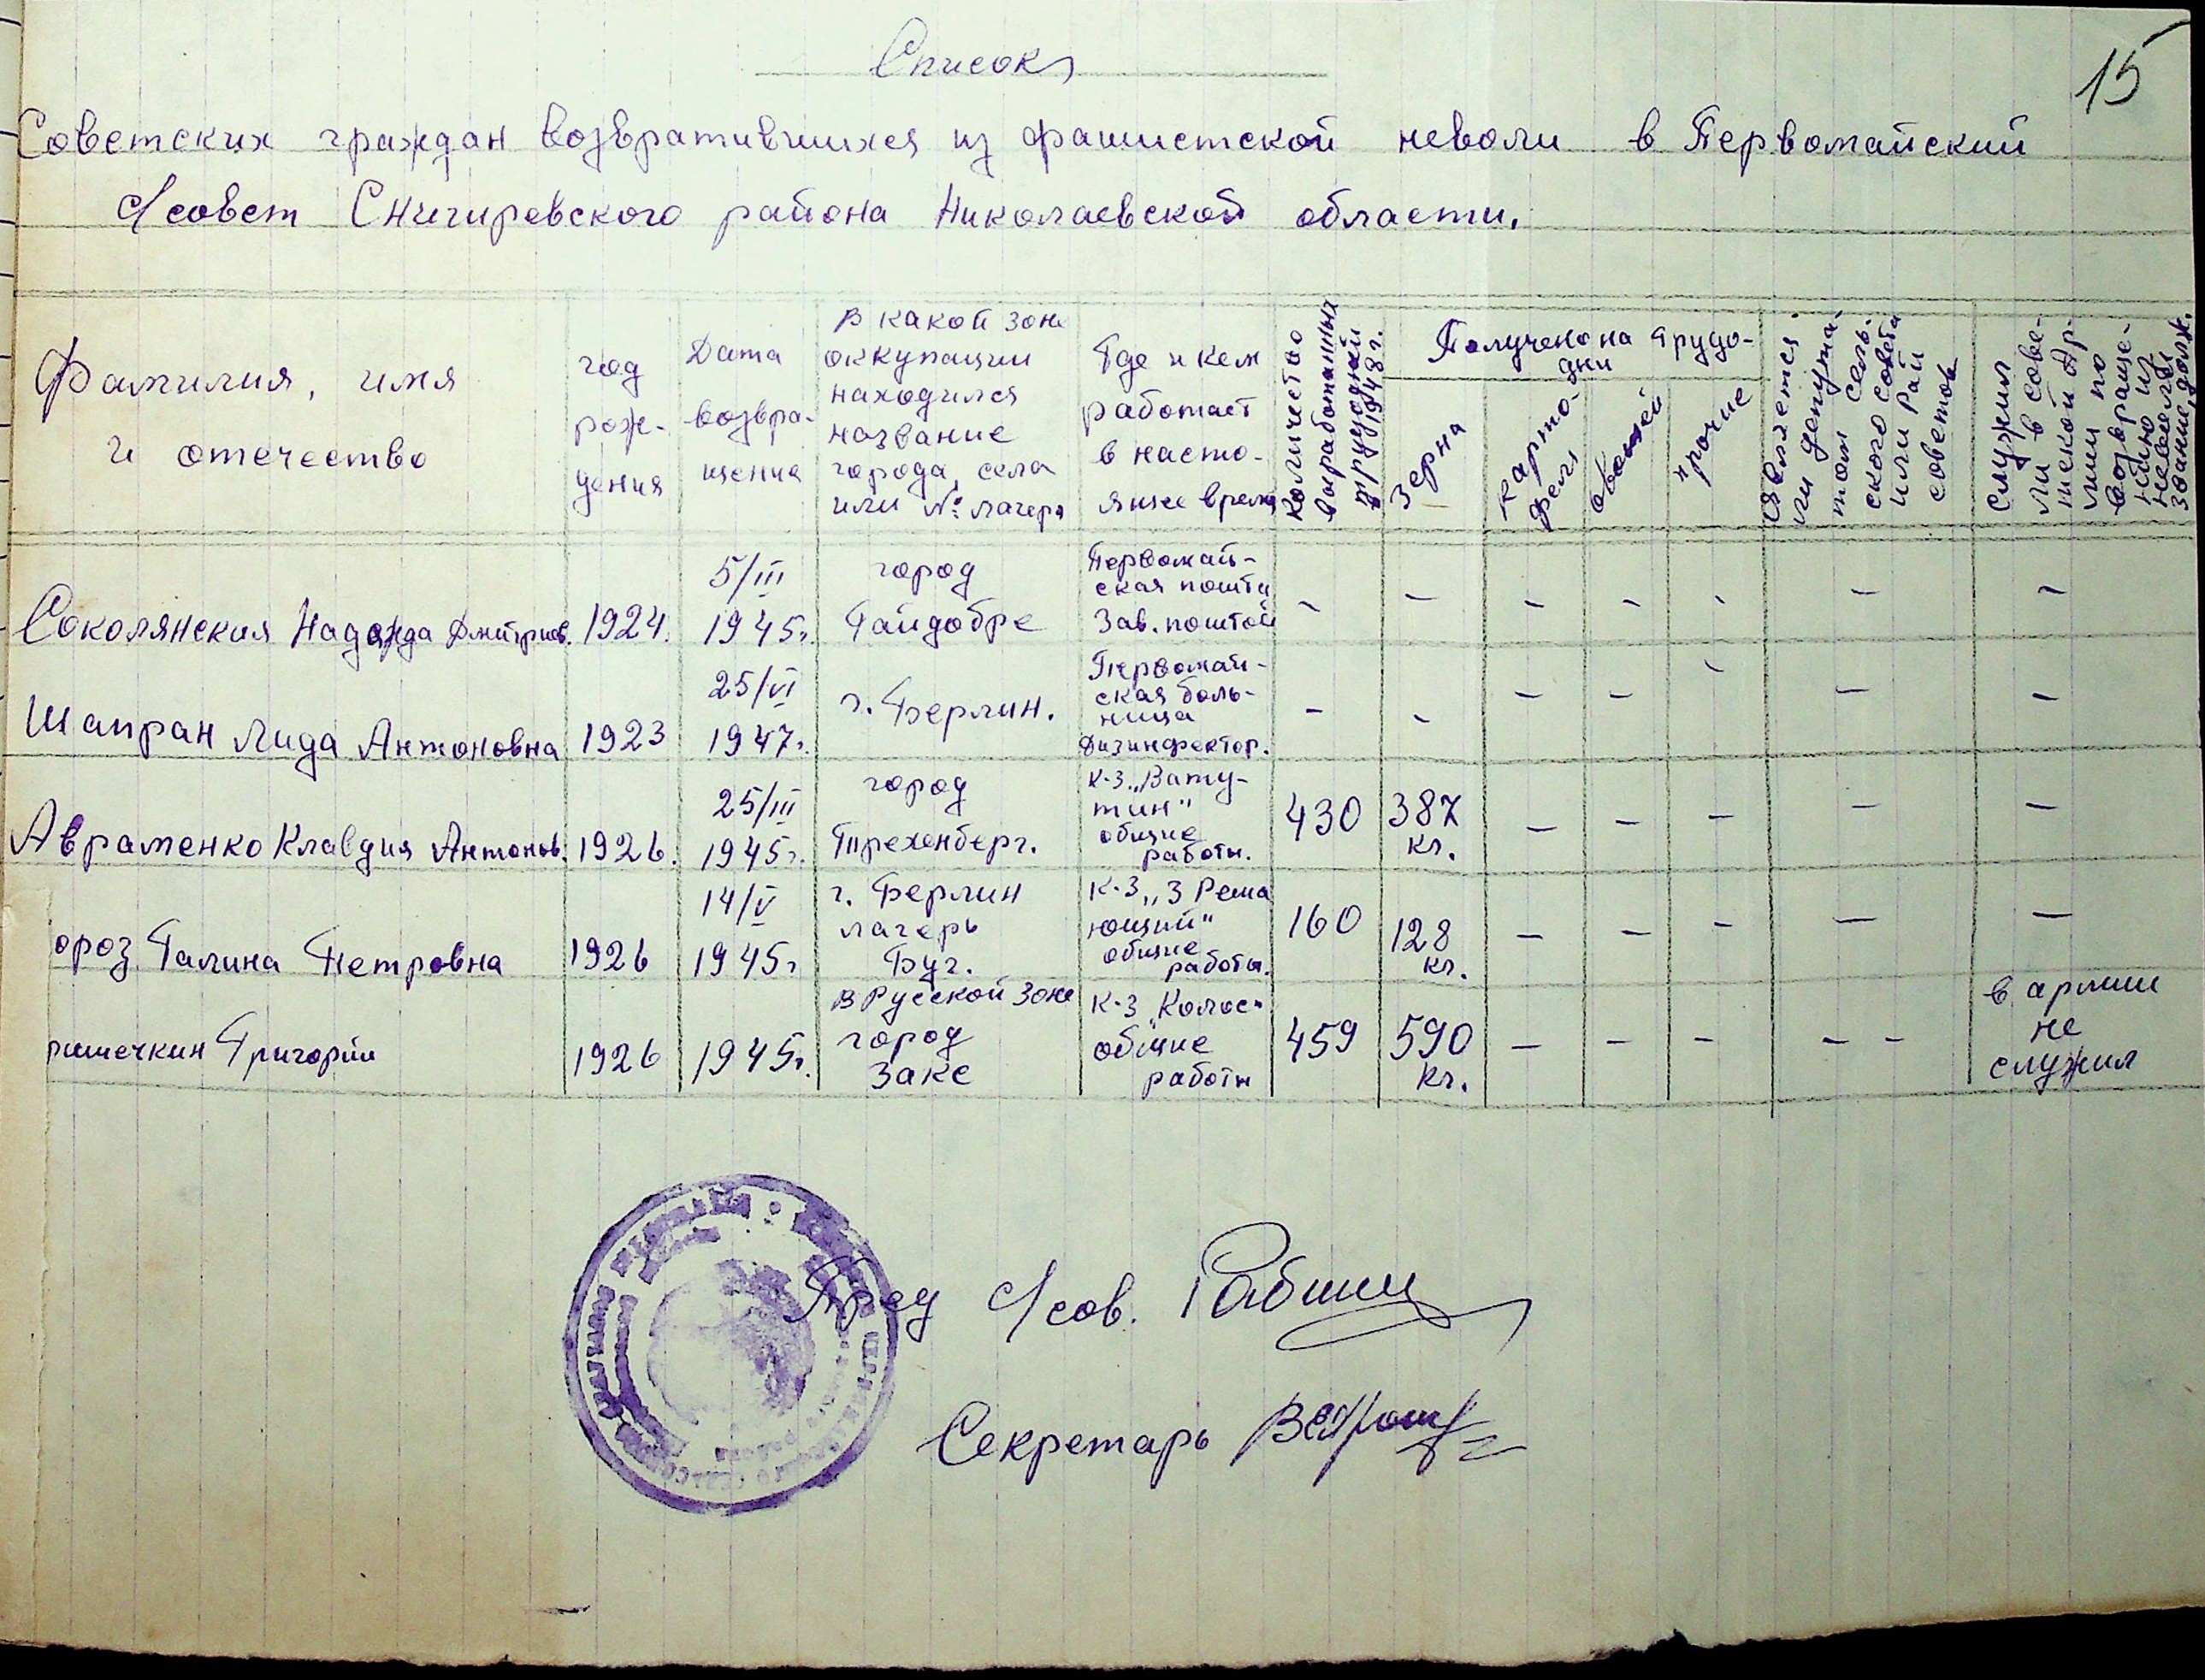 15
Список
Советских граждан возвратившихся из фашистской неволи в Первомайский
с/совет Снигиревского района Николаевской области.
Фамилия, имя
и отечество
год
рож-
дения
Дата
возвра-
щения
в какой зоне
оккупации
находился
название
города, села
или № лагеря
Где и кем
работает
в насто-
ящее время
Количество
выработанных
трудодней
в 1948 г.
Получено на трудо-
дни
Зерна
карто-
фель
овощей
прочие
Является
ли депута-
том сель-
ского совета
или рай
советов
Служил
ли в сове-
тской Ар-
мии по
возвраще-
нию из
неволи
звание, долж.
Соколянская Надежда Дмитриев. 1924. 5/III 1945г. город Гайдобре Первомай-
ская пошта
Зав. поштой - - - - - - -
Шапран Лида Антоновна 1923 25/VI 1947г. г. Берлин. Первомай-
ская боль-
ница
Дизинфектор. - - - - - - -
Авраменко Клавдия Антонов. 1926. 25/III 1945г. город Трехенберг. К-З „Вату-
тин"
общие
работы. 430 387 кг. - - - - -
ороз Галина Петровна 1926 14/V 1945г г. Берлин
лагерь
Буг. К-З „3 Реша
ющий"
общие
работы. 160 128 кг. - - - - -
ришечкин Григорий 1926 1945г. в Русской Зоне
город
Заке К-З „Колос"
общие
работы 459 590 кг. - - - - - в армии
не
служил
Пред с/сов.
Секретарь